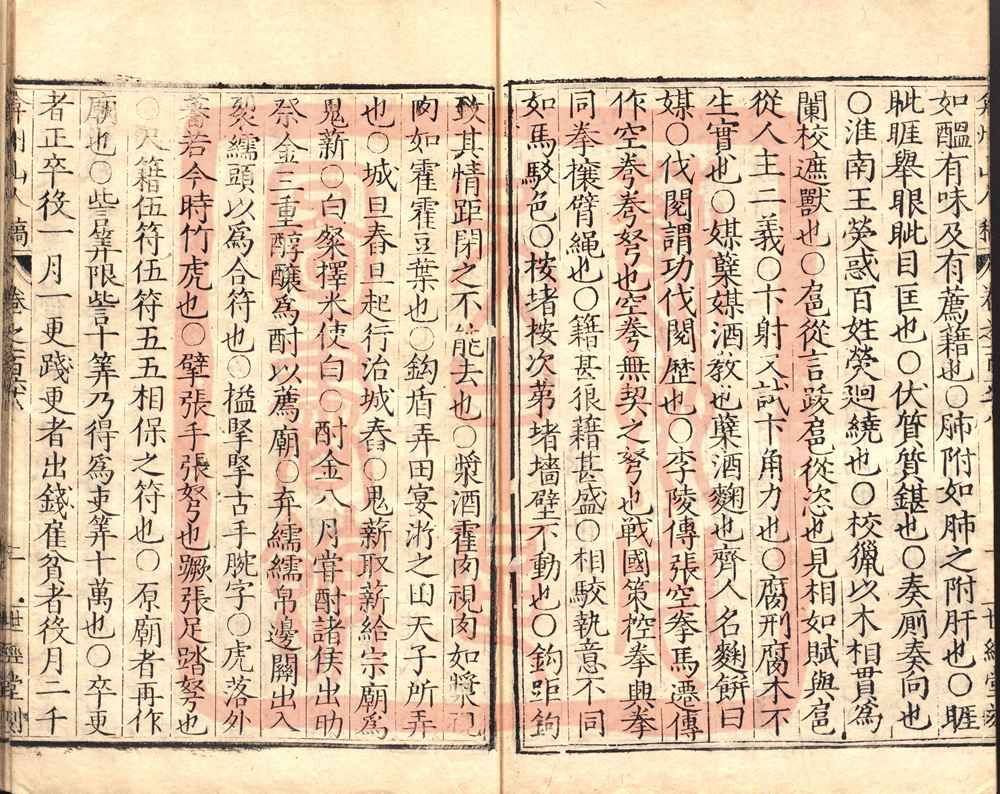 如醞有味及有薦籍也○肺附如肺之附肝也○睚
眦睚舉眼眦目匡也○伏質質鍖也○奏厠奏向也
○淮南王熒惑百姓熒迴繞也○校獵以木相貫為
闌校遮獸也○扈從言跋扈從恣也見相如賦與扈
從人主二義○卞射又試卞角力也○腐刑腐木不
生實也○媒糵媒酒教也糵酒麴也齊人名麴餅曰
媒○伐閱謂功伐閱歴也○李陵傳張空拳馬遷傳
作空弮弮弩也空弮無契之弩也戰國策椌拳興拳
同拳攘臂繩也○籍甚狠籍甚盛○相駮執意不同
如馬駮色○桉堵桉次第堵墻壁不動也○鈎距鈎
致其情距閉之不能去也○漿酒霍肉視肉如漿視
肉如霍霍豆葉也○鈎盾弄田宴游之田天子所弄
也○城旦舂旦起行治城舂○鬼薪取薪給宗廟為
鬼薪○白粲擇米使白○酎金八月嘗酎諸侯出助
祭金三重醇釀為酎以薦廟○弃繻繻帛邊關出入
裂繻頭以為合符也○搤掔掔古手腕字○虎落外
蕃若今時竹虎也○擘張手張弩也蹶張足踏弩也
○尺籍伍符伍符五五相保之符也○原廟者再作
廟也○訾筭限訾十筭乃得為吏筭十萬也○卒更
者正卒役一月一更踐更者出錢雇貧者役月二千
弇州山人稿 卷之百六 二 世經堂刻